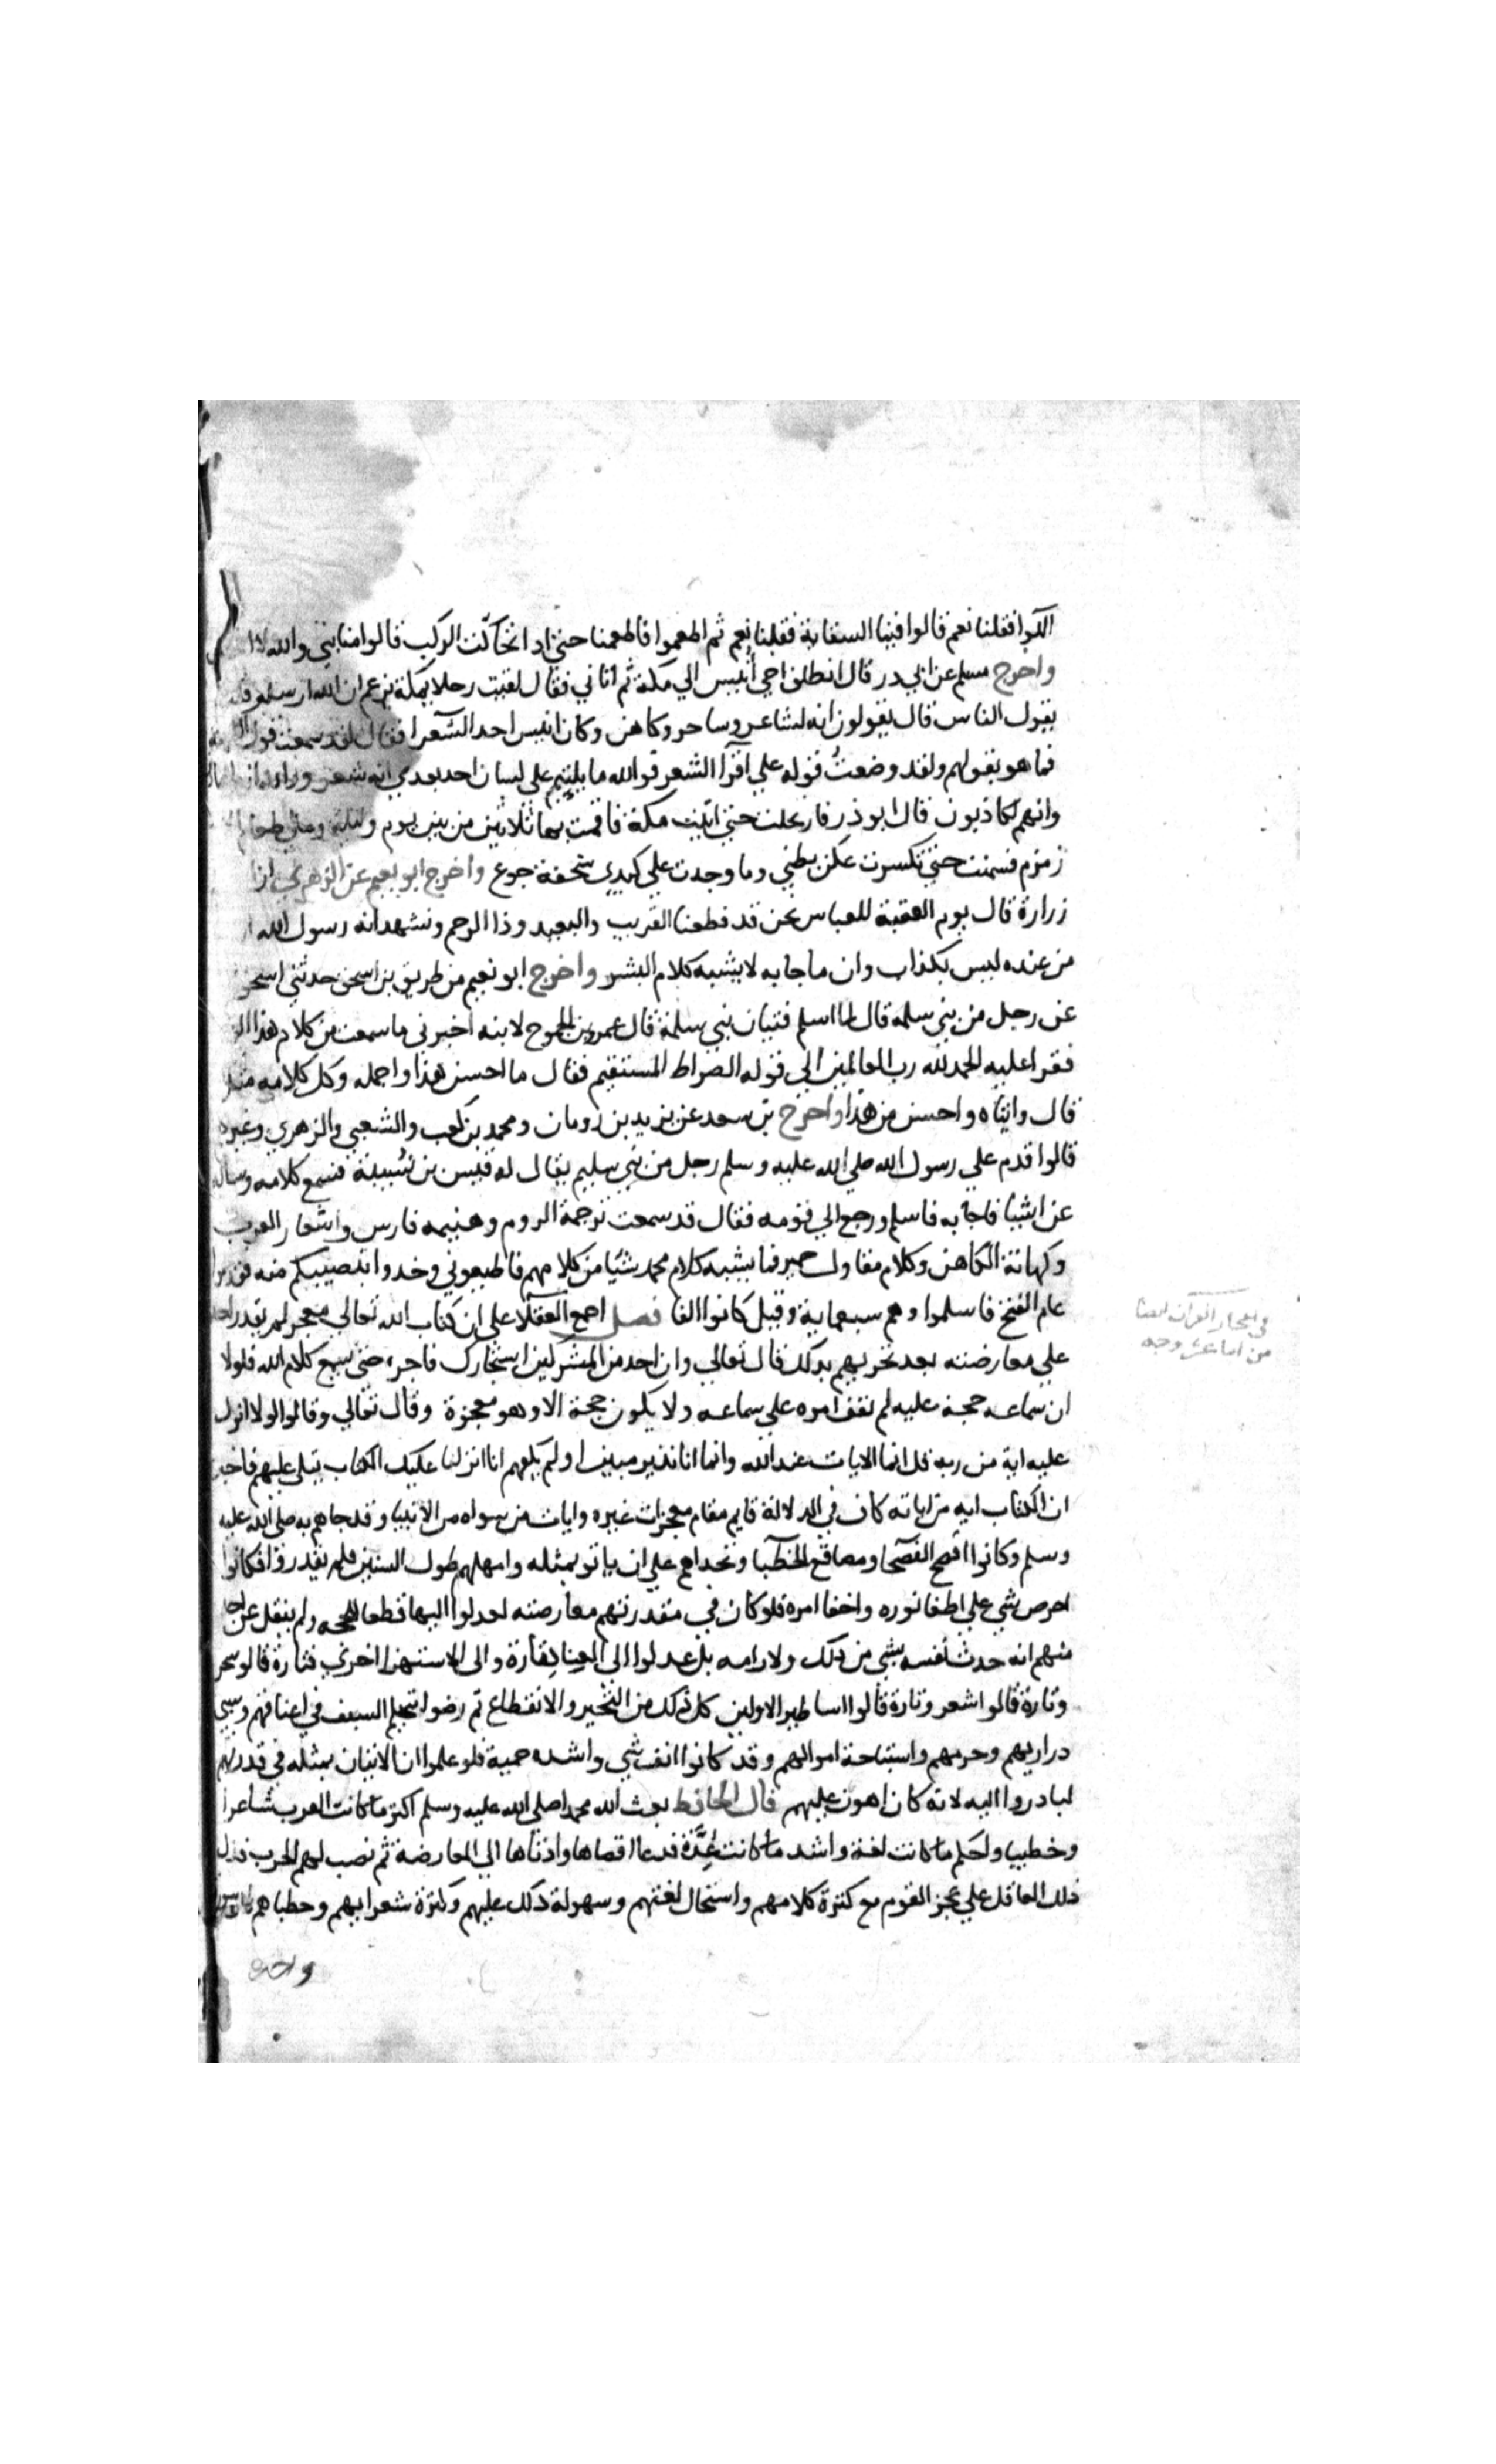 الركب فقلنا نعم قالوا فينا السقاية فقلنا نعم ثم اطعموا فاطعمنا حتي اذا تحاكت الركب قالوا منا نبي والله لا
واخرج مسلم عن ابي در قال انطلق اخي أنيس الي مكة ثم اتاني فقال لقيت رجلا بمكة يزعم ان الله ارسله
يقول الناس قال يقولون انه لشاعر وساحر وكاهن وكان انيس احد الشعرا فقال لقد سمعت قول
فما هو بقولهم ولقد وضعتُ قوله علي اقرآ الشعر فوالله ما يلتيم علي لسان احد بعدي انه شعر
وانهم لكاذبون قال ابو ذر فارتحلت حتي اتيت مكة فاقمت بها ثلاثين من بين يوم وليلة ومالي طعام
زمزم فسمنت حتي تكسرت عكن بطني وما وجدت علي كبدي سخفة جوع واخرج ابو نعيم عن الزهري
زرارة قال يوم العقبة للعباس نحن قد قطعنا القريب والبعيد وذا الرحم ونشهد انه رسول الله
من عنده ليس بكذاب وان ما جا به لا يشبه كلام البشر واخرج ابو نعيم من طريق بن اسحق حدثني اسحق
عن رجل من بني سلمه قال لما اسلم فتيان بني سلمة قال عمرو بن الجموح لابنه اخبرني ما سمعت من كلام هذا
فقرا عليه الحمد لله رب العالمين الي قوله الصراط المستقيم فقال ما احسن هذا واجمله وكل كلامه
قال وابتاه واحسن من هذا واخرج بن سعد عن يزيد بن رومان ومحمد بن كعب والشعبي والزهري وغيره
قالوا قدم علي رسول الله صلي الله عليه وسلم رجل من بني سليم يقال له قيس بن نسيبة فسمع كلامه وساله
عن اشيا فاجابه فاسلم ورجع الي قومه فقال قد سمعت ترجمة الروم وهنيمه فارس واشعار العرب
وكهانة الكاهن وكلام مقاول حمير فما يشبه كلام محمد شيا من كلامهم فاطيعوني وخدوا بنصيبكم منه
عام الفتح فاسلموا وهم سبعماية وقيل كانوا الفا فصل اجمع العقلا علي ان كتاب الله تعالي معجز لم يقدر احد
علي معارضته بعد تحديهم بدلك قال تعالي وان احد من المشركين استجارك فاجره حتي يسمع كلام الله فلولا
ان سماعه حجة عليه لم يقف امره علي سماعه ولا يكون حجة الا وهو معجزة وقال تعالي وقالوا لولا انزل
عليه اية من ربه قل انما الايات عند الله وانما انا نذير مبين ا ولم يكفهم انا انزلنا عليك الكتاب يتلي عليهم فاخبر
ان الكتاب ايه من اياته كاف في الدلالة قايم مقام معجزات غيره وايات من سواه من الانبيا وقد جاهم به صلي الله عليه
وسلم وكانوا افصح الفصحا ومصاقع الخطبا وتحداهم علي ان ياتو بمثله وامهلهم طول السنين فلم يقدروا فكانوا
احرص شي علي اطفا نوره واخفا امره فلو كان في مقدرتهم معارضته لعدلوا اليها قطعا للحجه ولم ينقل عن احد
منهم انه حدث نفسه بشي من ذلك ولا رامه بل عدلوا الي العناد تارة والي الاستهزا اخري فتارة قالو سحر
وتارة قالو اشعر وتارة قالوا اساطير الاولين كل ذلك من التحير والانقطاع تم رضوا بتحكيم السيف في اعناقهم وسبي
دراريهم وحرمهم واستباحة اموالهم وقد كانوا انف شي واشده حمية فلو علموا ان الاتيان بمثله في قدرتهم
لبادروا اليه لانه كان اهون عليهم قال الحافظ بعث الله محمدا صلي الله عليه وسلم اكثر ما كانت العرب شاعرا
وخطيبا ولحكم ما كانت لغة واشد ما كانت عُدَّة فدعا اقصاها وادناها الي المعارضة ثم نصب لهم الحرب فدل
ذلك العاقل علي عجز القوم مع كثرة كلامهم واستحال لغتهم وسهولة ذلك عليهم وكثرة شعرايهم وخطباهم
في اعجاز القران
من اثنا عشر وجه